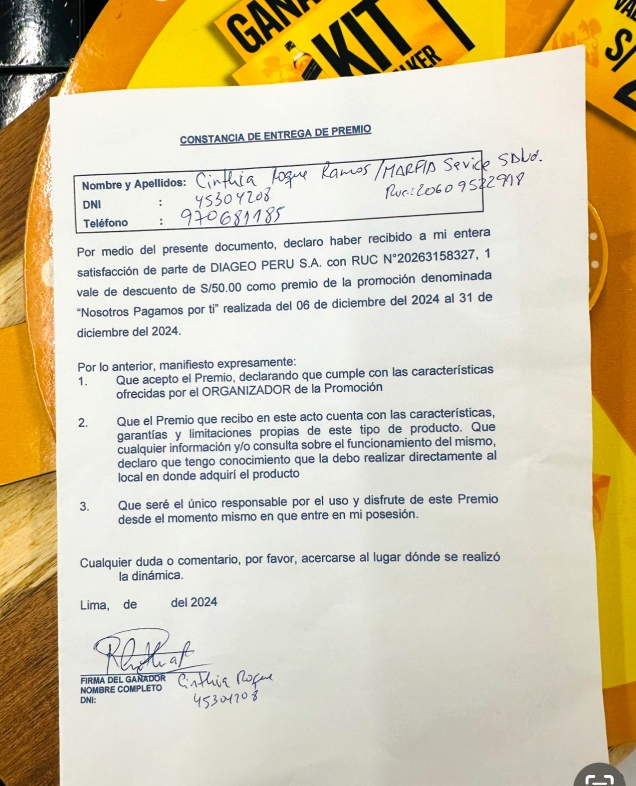 GANA
KIT
LKER
VA
S/
CONSTANCIA DE ENTREGA DE PREMIO
Nombre y Apellidos: Cinthia Roque Ramos / MARFID Sevice
DNI : 45304208 Ruc: 20609522918
Teléfono : 970681185
Por medio del presente documento, declaro haber recibido a mi entera
satisfacción de parte de DIAGEO PERU S.A. con RUC N°20263158327, 1
vale de descuento de S/50.00 como premio de la promoción denominada
“Nosotros Pagamos por ti” realizada del 06 de diciembre del 2024 al 31 de
diciembre del 2024.
Por lo anterior, manifiesto expresamente:
1. Que acepto el Premio, declarando que cumple con las características
ofrecidas por el ORGANIZADOR de la Promoción
2. Que el Premio que recibo en este acto cuenta con las características,
garantías y limitaciones propias de este tipo de producto. Que
cualquier información y/o consulta sobre el funcionamiento del mismo,
declaro que tengo conocimiento que la debo realizar directamente al
local en donde adquirí el producto
3. Que seré el único responsable por el uso y disfrute de este Premio
desde el momento mismo en que entre en mi posesión.
Cualquier duda o comentario, por favor, acercarse al lugar dónde se realizó
la dinámica.
Lima, de del 2024
FIRMA DEL GANADOR
NOMBRE COMPLETO Cinthia Roque
DNI: 45304208